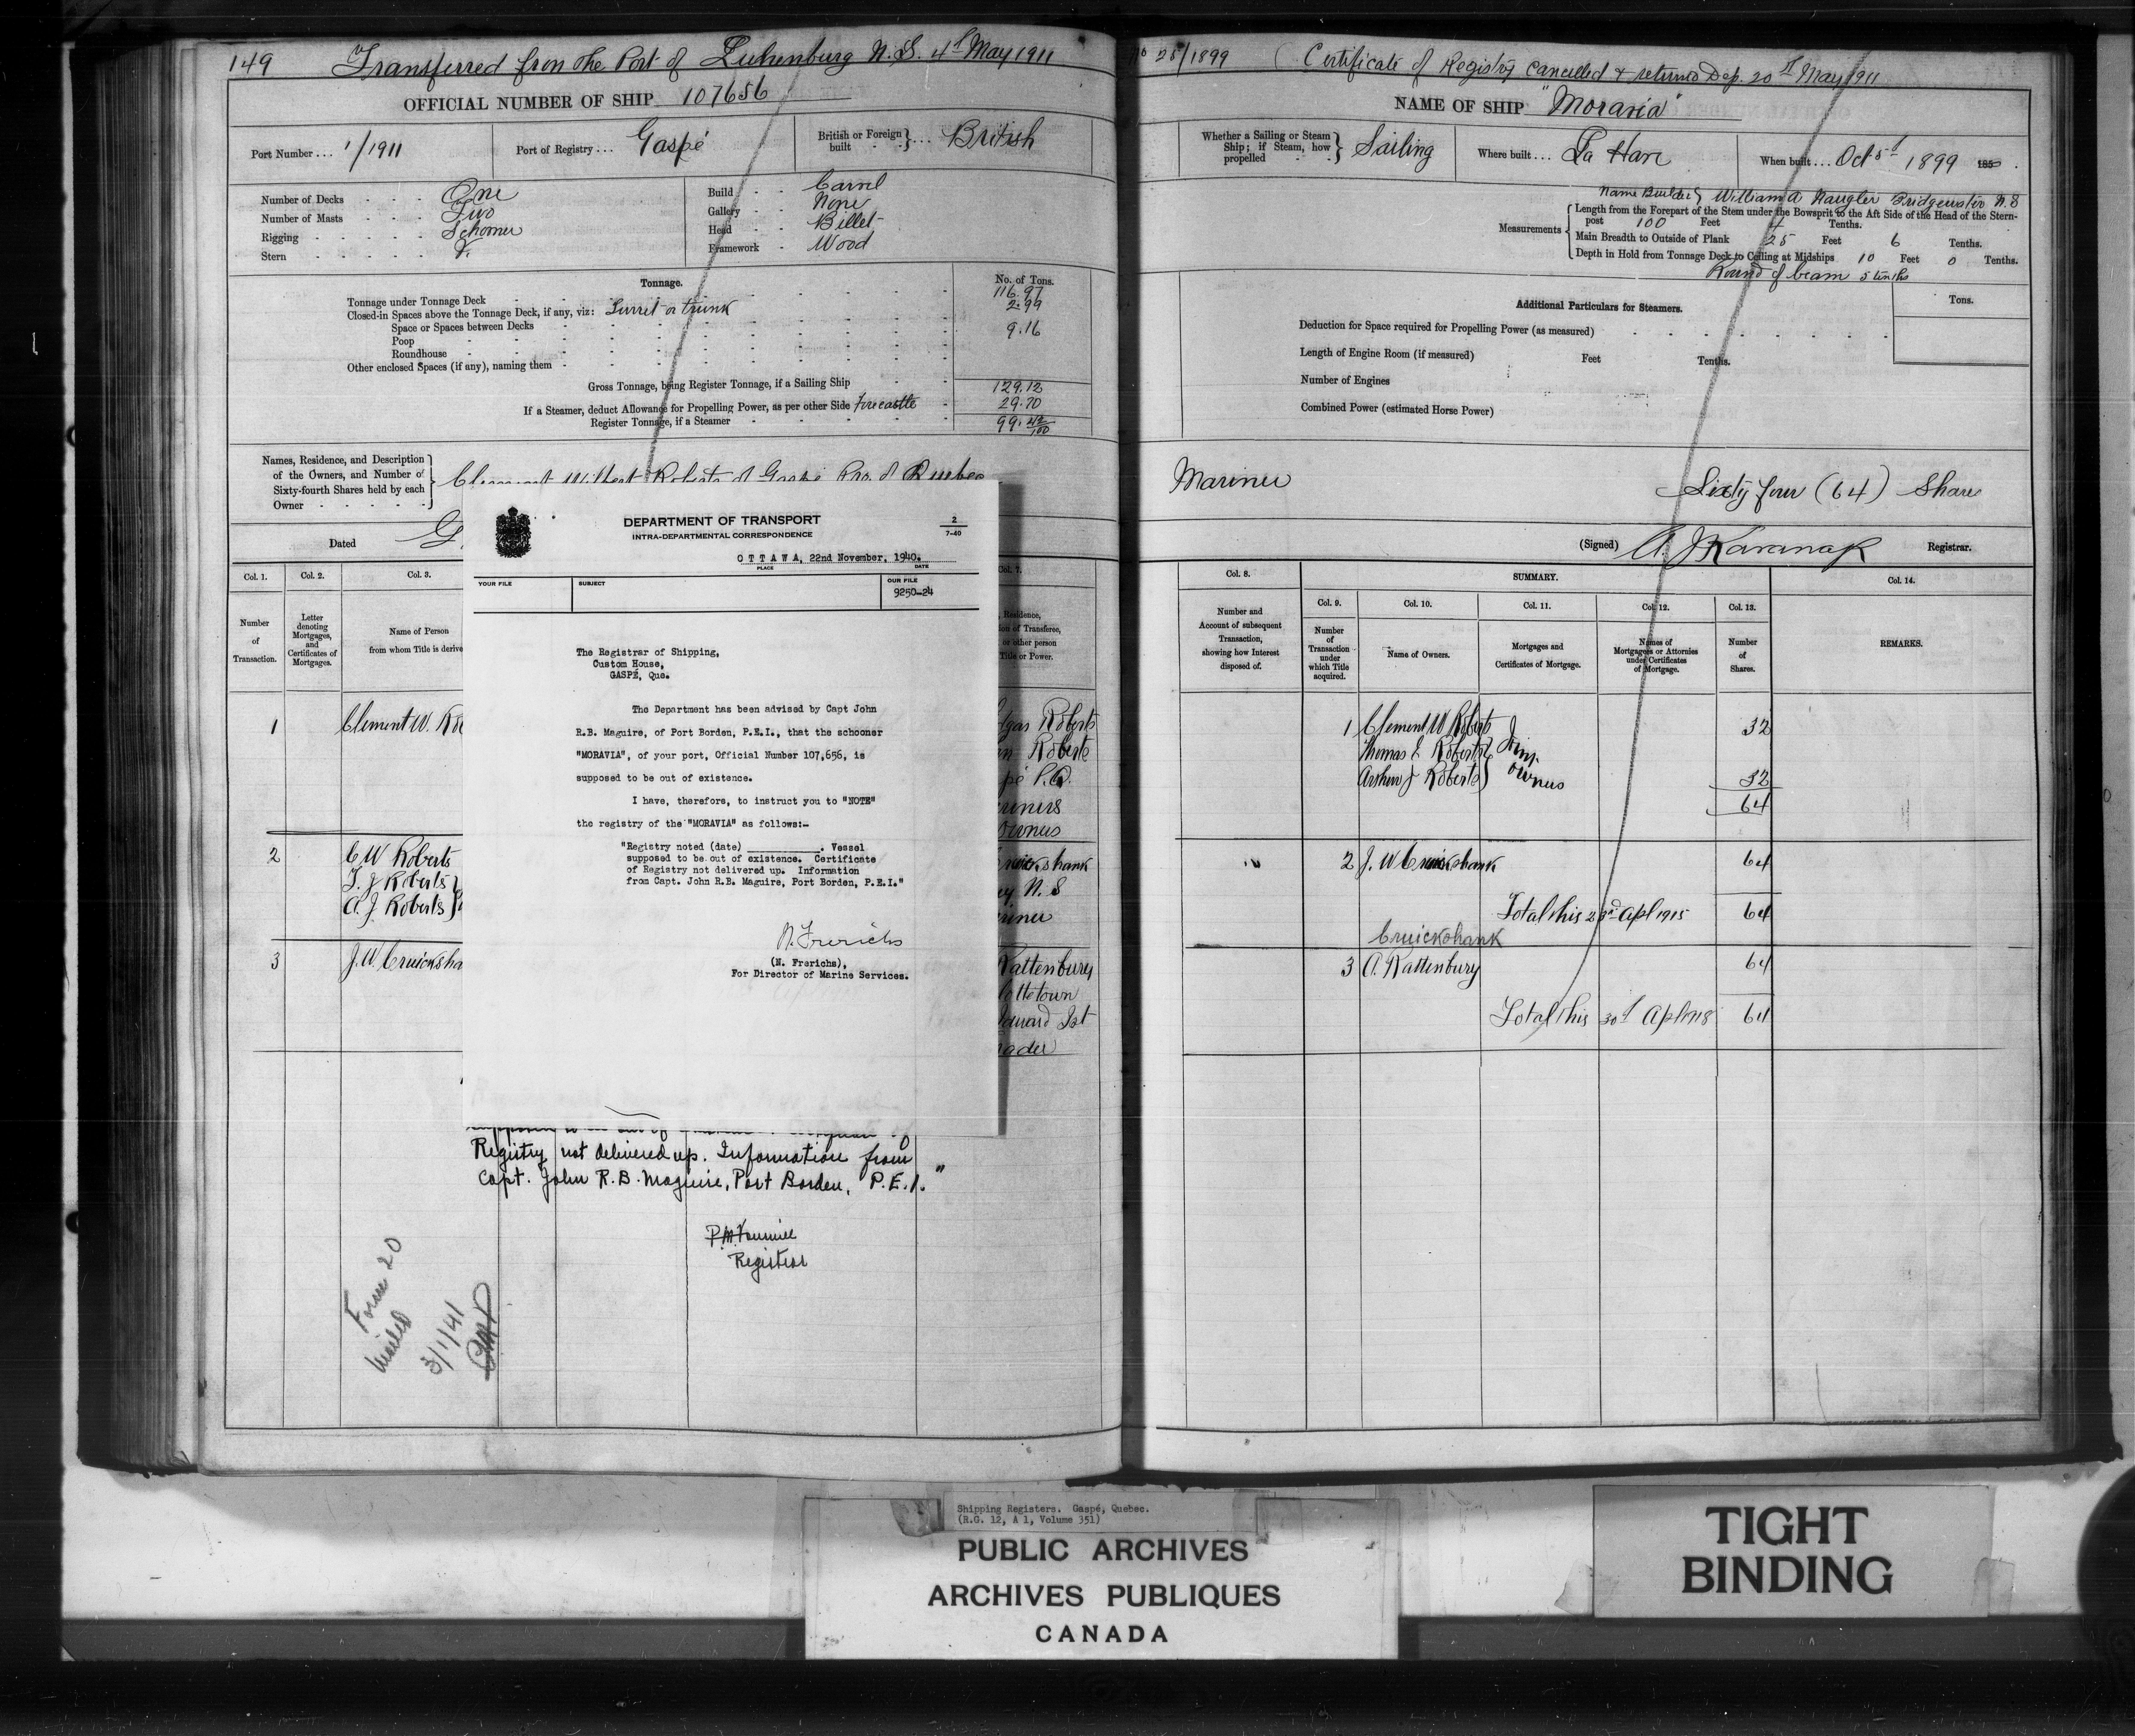 149 Transferred from the Port of Luhenburg N.S. 4th May 1911
No 25/1899 (Certificate of Registry cancelled & returned Dep. 20th May 1911
OFFICIAL NUMBER OF SHIP 107656
NAME OF SHIP "Moravia"
Port Number ... 1/1911
Port of Registry ... Gaspé
British or Foreign built } ... British
Whether a Sailing or Steam Ship; if Steam, how propelled } Sailing
Where built ... La Have
When built ... Oct 5th 1899 185
Number of Decks - - - One
Number of Masts - - - Two
Rigging - - - - - Schooner
Stern - - - - -
Build - - Carvel
Gallery - - None
Head - - Billet
Framework - Wood
Name Builder } William A Naugler Bridgewater N.S
Measurements
Length from the Forepart of the Stem under the Bowsprit to the Aft Side of the Head of the Stern-
post 100 Feet 4 Tenths.
Main Breadth to Outside of Plank 25 Feet 6 Tenths.
Depth in Hold from Tonnage Deck to Ceiling at Midships 10 Feet 0 Tenths.
Round of beam 5 tenths
Tonnage.
No. of Tons.
Tonnage under Tonnage Deck 116.97
Closed-in Spaces above the Tonnage Deck, if any, viz: Turret or trunk 2.99
Space or Spaces between Decks 9.16
Poop
Roundhouse
Other enclosed Spaces (if any), naming them
Gross Tonnage, being Register Tonnage, if a Sailing Ship 129.12
If a Steamer, deduct Allowance for Propelling Power, as per other Side Forecastle 29.70
Register Tonnage, if a Steamer 99.42/100
Additional Particulars for Steamers.
Tons.
Deduction for Space required for Propelling Power (as measured)
Length of Engine Room (if measured) Feet Tenths.
Number of Engines
Combined Power (estimated Horse Power)
Names, Residence, and Description
of the Owners, and Number of
Sixty-fourth Shares held by each
Owner - - - - -
Clement Wilbert Roberts of Gaspé Pro. of Quebec
Mariner Sixty four (64) Shares
Dated G
(Signed) A. J Kavanagh Registrar.
DEPARTMENT OF TRANSPORT
INTRA-DEPARTMENTAL CORRESPONDENCE
2
7-40
OTTAWA, 22nd November, 1940.
PLACE DATE
YOUR FILE SUBJECT OUR FILE
9250-24
The Registrar of Shipping,
Custom House,
GASPE, Que.
The Department has been advised by Capt John
R.B. Maguire, of Port Borden, P.E.I., that the schooner
"MORAVIA", of your port, Official Number 107,656, is
supposed to be out of existence.
I have, therefore, to instruct you to "NOTE"
the registry of the "MORAVIA" as follows:-
"Registry noted (date) __________. Vessel
supposed to be out of existence. Certificate
of Registry not delivered up. Information
from Capt. John R.B. Maguire, Port Borden, P.E.I."
N. Frerichs
(N. Frerichs),
For Director of Marine Services.
Col. 1.
Number
of
Transaction.
Col. 2.
Letter
denoting
Mortgages,
and
Certificates of
Mortgages.
Col. 3.
Name of Person
from whom Title is derive
Col. 7.
Residence,
ion of Transferee,
or other person
Title or Power.
1 Clement W. Ro
dgar Roberts
Roberts
pé P.Q.
riners
Owners
2 C W Roberts
T. J Roberts
A. J. Roberts
ruickshank
ey N. S
riner
3 J. W. Cruicksha
Rattenbury
lottetown
dward Ist
rader
Registry not delivered up. Information from
Capt. John R.B. Maguire, Port Borden, P.E.I."
Registrar
Form 20
mailed
3/1/41
Col. 8.
Number and
Account of subsequent
Transaction,
showing how Interest
disposed of.
SUMMARY.
Col. 9.
Number
of
Transaction
under
which Title
acquired.
Col. 10.
Name of Owners.
Col. 11.
Mortgages and
Certificates of Mortgage.
Col. 12.
Names of
Mortgagees or Attornies
under Certificates
of Mortgage.
Col. 13.
Number
of
Shares.
Col. 14.
REMARKS.
1 Clement W Roberts 32
Thomas E Roberts } Joint
Arthur J Roberts } owners 32
64
2 J. W Cruickshank 64
Total this 23rd Apl 1915 64
Cruickshank
3 A. Rattenbury 64
Total this 30th Apl 1918 64
Shipping Registers. Gaspé, Quebec.
(R.G. 12, A 1, Volume 351)
PUBLIC ARCHIVES
ARCHIVES PUBLIQUES
CANADA
TIGHT
BINDING